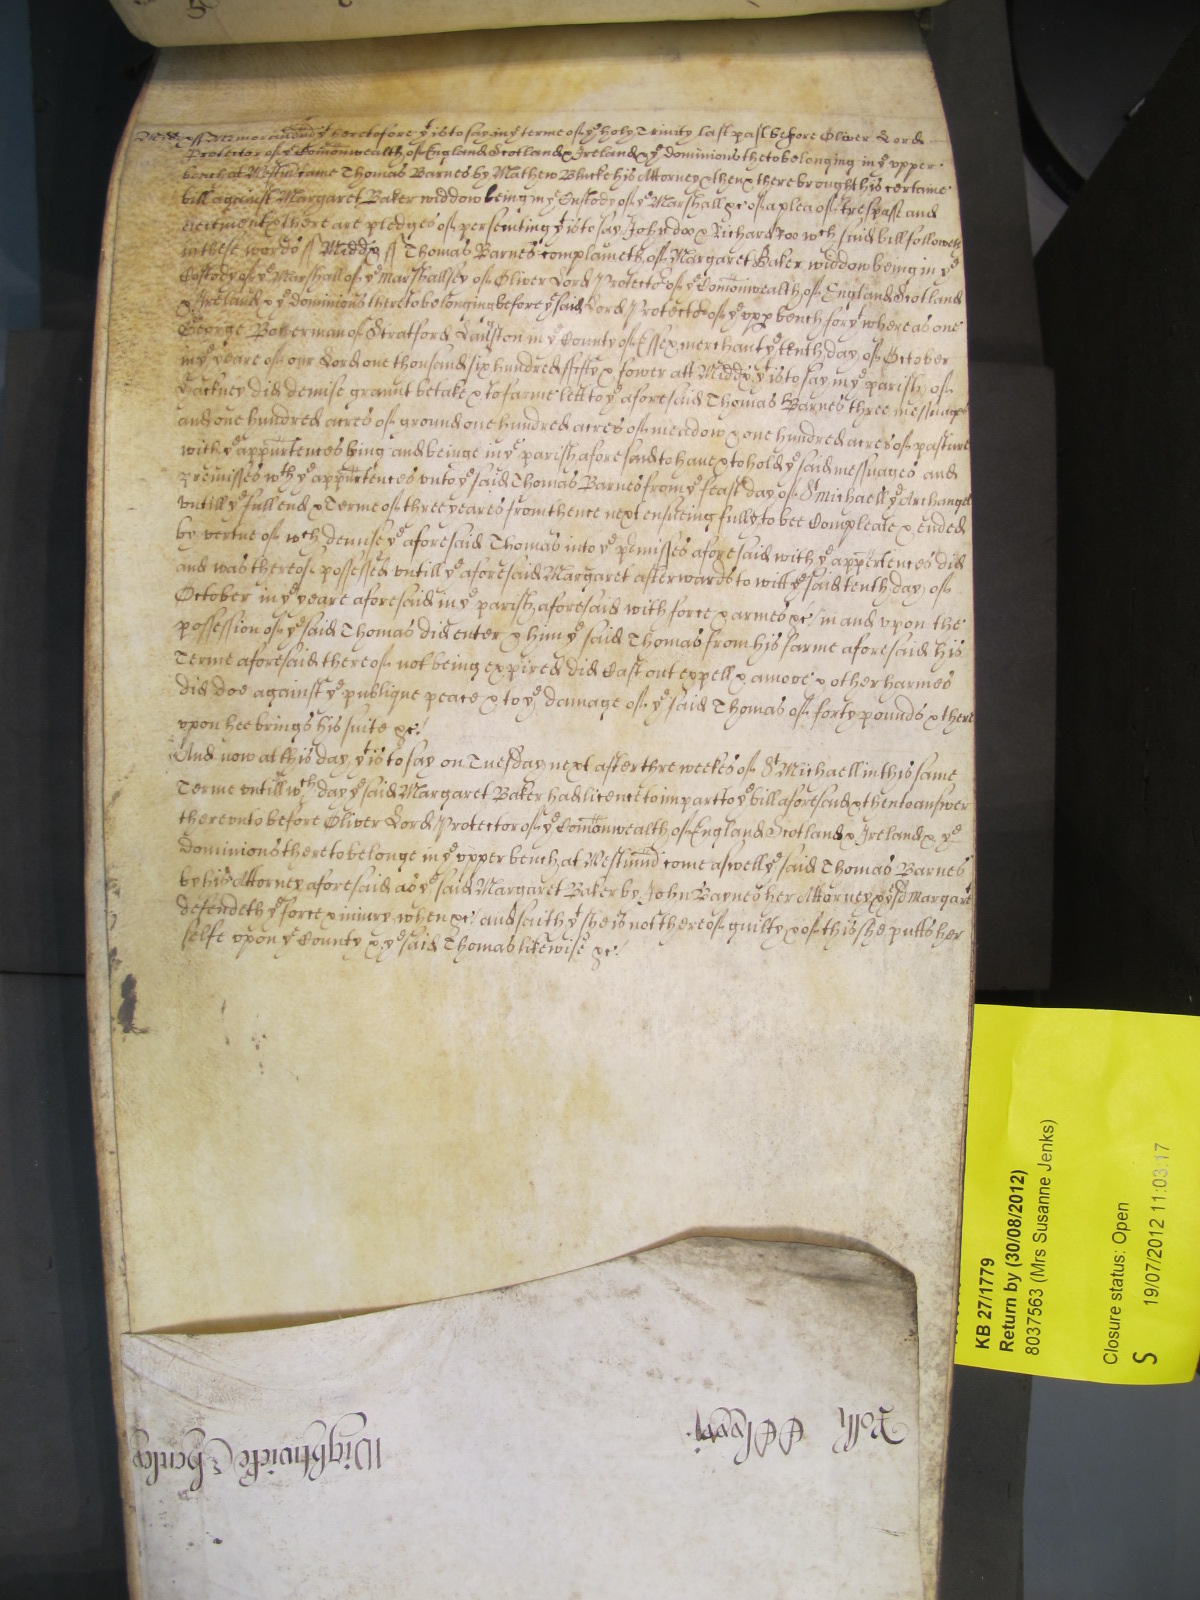 Midd ss Memorand yt heretofore yt is to say in ye terme of ye holy Trinity last past before Oliver Lord
Protector of ye Comonwealth of England Scotland & Ireland & ye dominions thereto belonging in ye upper
bench at Westm came Thomas Barnes by Mathew Blucke his Attorney & then & there brought his certaine
bill against Margaret Baker widdow being in ye Custody of ye Marshall &c of a plea of trespasse and
eiectment & there are pledges of persecuting yt is to say John doo & Richard roo wch said bill followeth
in these words ss Middx ss Thomas Barnes complaineth of Margaret Baker widdow being in ye
Costody of ye Marshall of ye Marshallsey of Oliver Lord Protector of ye Comonwealth of England Scotland
& Ireland & ye dominions thereto belonging before ye said Lord Protector of ye upp bench for yt whereas one
George Bowerman of Stratford Langton in ye County of Essex merchant ye tenth day of October
in ye yeare of our Lord one thousand six hundred fifty & fower att Middx yt is to say in ye parish of
Hackney did demise graunt betake & to farme lett to ye aforesaid Thomas Barnes three messuages
and one hundred acres of ground one hundred acres of meadow & one hundred acres of pasture
with ye appurtences lying and beinge in ye parish aforesaid to have & to hold ye said messuages and
premisses wth ye appurtences unto ye said Thomas Barnes from ye feast day of St Michaell ye Archangel
untill ye full end & Terme of three yeares from thence next ensueing fully to bee Compleate & ended
by vertue of wch demise ye aforesaid Thomas into ye pmisses aforesaid with ye apptences did
and was thereof possessed untill ye aforesaid Margaret afterwards to witt ye said tenth day of
October in ye yeare aforesaid in ye parish aforesaid with force & armes &c in and upon the
possession of ye said Thomas did enter & him ye said Thomas from his farme aforesaid his
Terme aforesaid thereof not being expired did Cast out expell & amove & other harmes
did doe against ye publique peace & to ye damage of ye said Thomas of forty pounds & there
upon hee brings his suite &c
And now at this day yt is to say on Tuesday next after three weekes of St Michaell in this same
Terme untill wch day ye said Margaret Baker had licence to impart to ye bill aforesaid & then to answer
thereunto before Oliver Lord Protector of ye Comonwealth of England Scotland & Ireland & ye
dominions thereto belonge in ye upper bench at Westm come aswell ye said Thomas Barnes
by his Attorney aforesaid as ye said Margaret Baker by John Baynes her Attorney & ye sd Margaret
defendeth ye force & iniury when &c and saith yt she is not thereof guilty & of this she putts her
selfe upon ye County & ye said Thomas likewise &c
KB 27/1779
Return by (30/08/2012)
8037563 (Mrs Susanne Jenks)
Closure status: Open
S 19/07/2012 11:03:17
Wightwicke